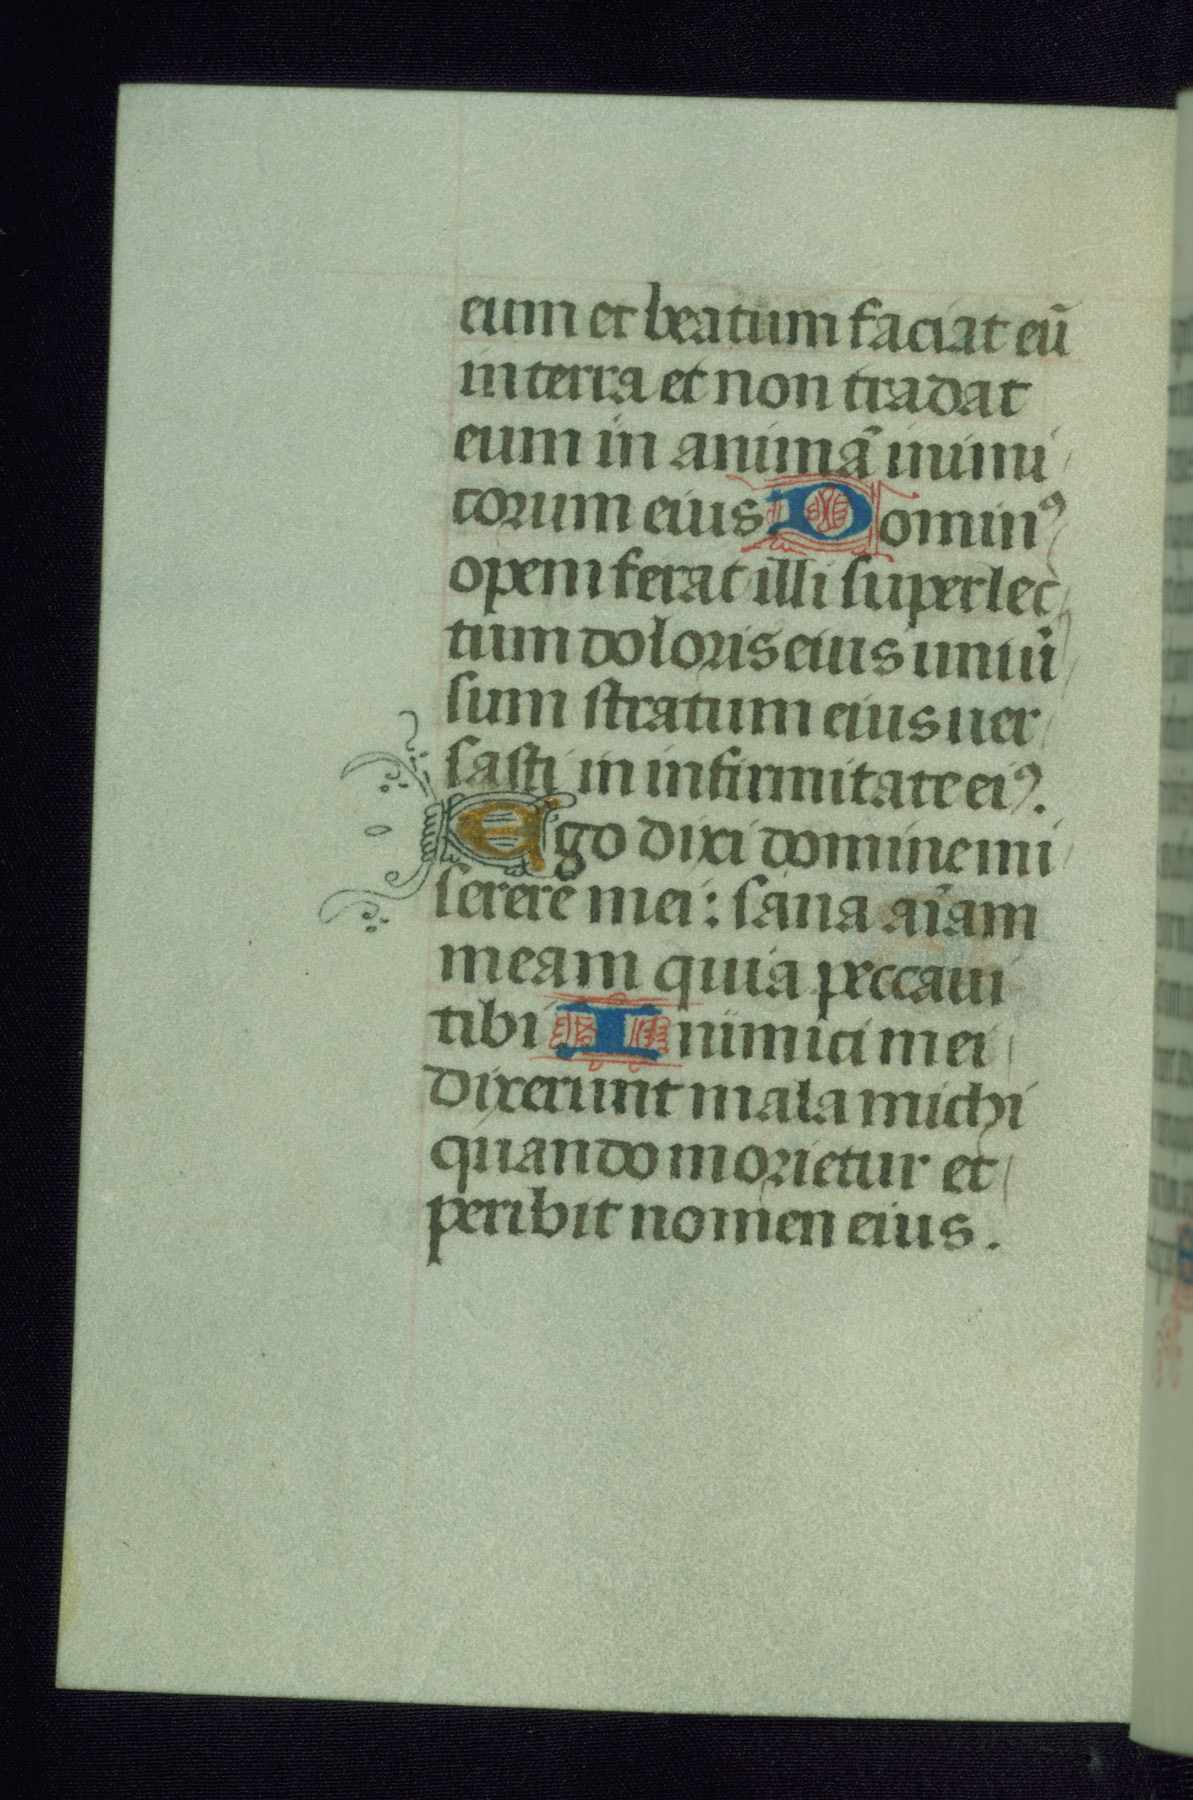 eum et beatum faciat eū
in terra et non tradat
eum in animā inimi
corum eius Dominꝰ
opem ferat illi super lec
tum doloris eius uniu̅
sum stratum eius uer
sasti in infirmitate eiꝰ.
Ego dixi domine mi
serere mei: sana aīam
meam quia peccaui
tibi Inimici mei
dixerunt mala michi
quando morietur et
peribit nomen eius.